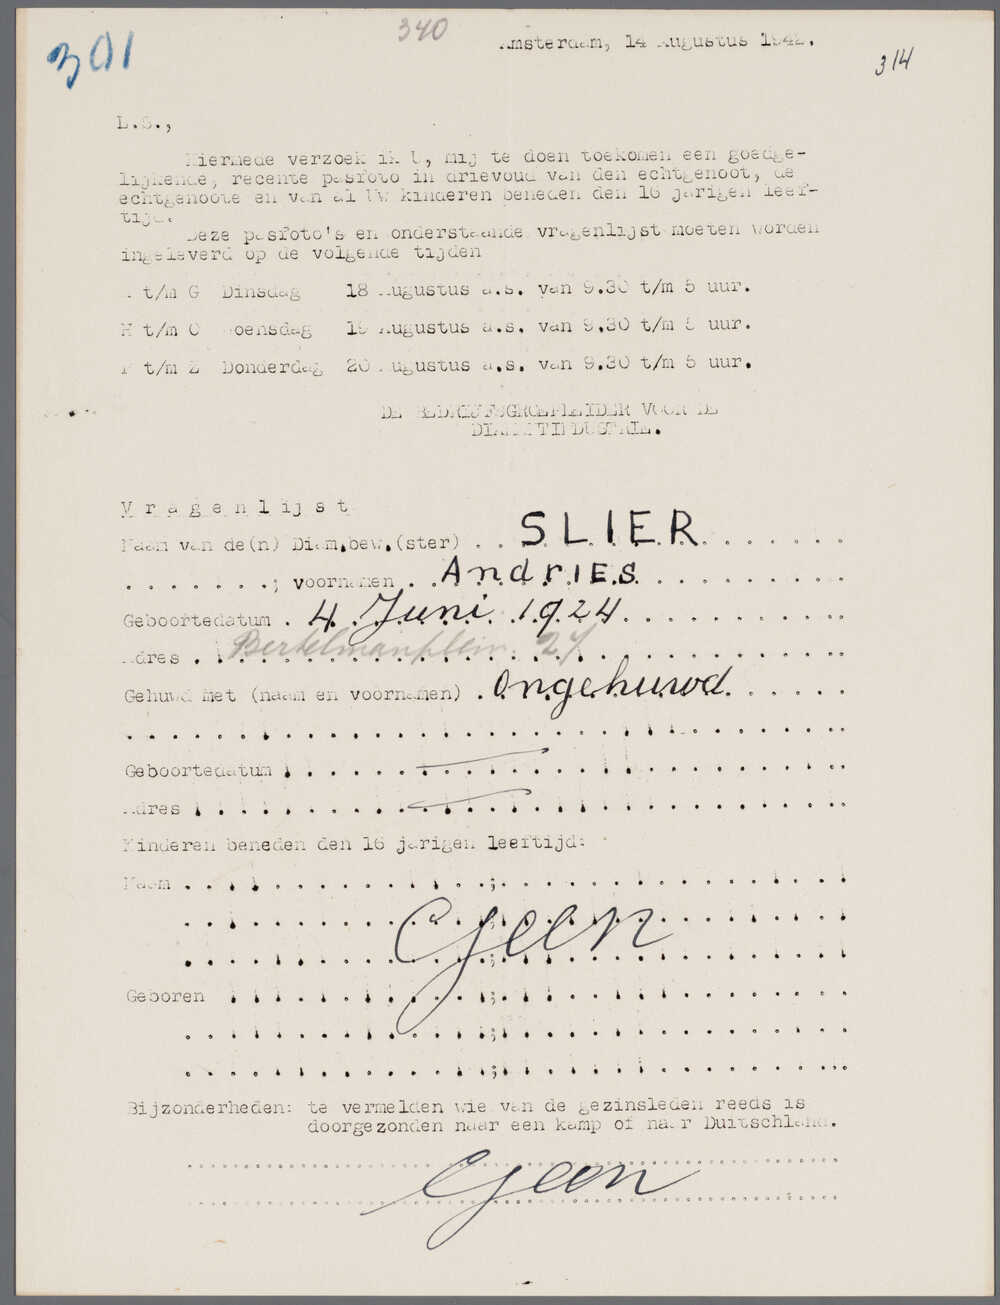 301
340
Amsterdam, 14 Augustus 1942.
314
L.S.,
Hiermede verzoek ik U, mij te doen toekomen een goedge-
lijkende, recente pasfoto in drievoud van den echtgenoot, de
echtgenoote en van al Uw kinderen beneden den 16 jarigen leef-
tijd.
Deze pasfoto's en onderstaande vragenlijst moeten worden
ingeleverd op de volgende tijden
A t/m G Dinsdag 18 Augustus a.s. van 9.30 t/m 5 uur.
H t/m O Woensdag 19 Augustus a.s. van 9.30 t/m 5 uur.
P t/m Z Donderdag 20 Augustus a.s. van 9.30 t/m 5 uur.
DE BEDRIJFSGROEPLEIDER VOOR DE
DIAMANTINDUSTRIE.
Vragenlijst
Naam van de(n) Diam.bew.(ster) . . SLIER
; voornamen . Andries
Geboortedatum . 4 Juni 1924
Adres . Bertelmanplein 27
Gehuwd met (naam en voornamen) . Ongehuwd
Geboortedatum
Adres
Kinderen beneden den 16 jarigen leeftijd:
Naam
Geen
Geboren
Bijzonderheden: te vermelden wie van de gezinsleden reeds is
doorgezonden naar een kamp of naar Duitschland.
Geen